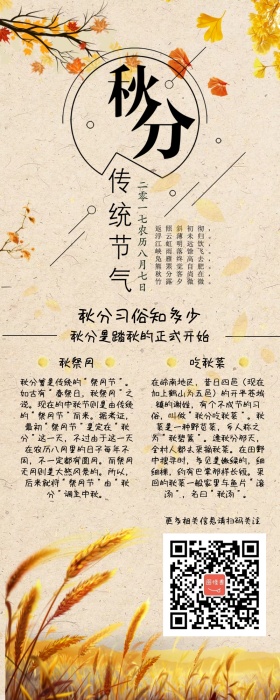 秋分
传统节气
二零一七农历八月七日
返照斜初彻,
浮云薄未归。
江虹明远饮,
峡雨落馀飞。
凫雁终高去,
熊罴觉自肥。
秋分客尚在,
竹露夕微微。
秋分习俗知多少
秋分是踏秋的正式开始
秋祭月
秋分曾是传统的“祭月节”。
如古有“春祭日,秋祭月”之
说。现在的中秋节则是由传统
的“祭月节”而来。据考证,
最初“祭月节”是定在“秋
分”这一天,不过由于这一天
在农历八月里的日子每年不
同,不一定都有圆月。而祭月
无月则是大煞风景的。所以,
后来就将“祭月节”由“秋
分”调至中秋。
吃秋菜
在岭南地区,昔日四邑(现在
加上鹤山为五邑)的开平苍城
镇的谢姓,有个不成节的习
俗,叫做“秋分吃秋菜”。秋
菜是一种野苋菜,乡人称之
为“秋碧蒿”。逢秋分那天,
全村人都去采摘秋菜。在田野
中搜寻时,多见是嫩绿的,细
细棵,约有巴掌那样长短。采
回的秋菜一般家里与鱼片“滚
汤”,名曰“秋汤”。
更多相关信息请扫码关注
图怪兽